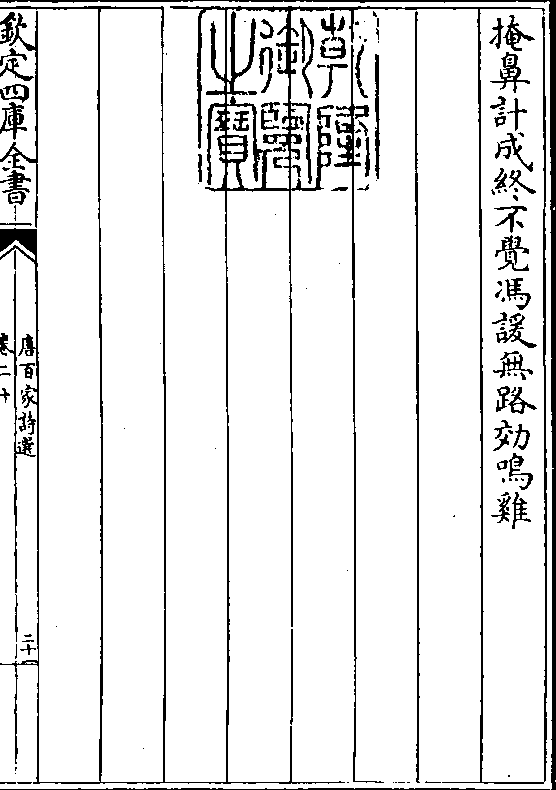 掩鼻計成終不覺馮諼無路効鳴雞
乾隆
御覽
之寶
欽定四庫全書
唐百家詩選
卷二十
二十一